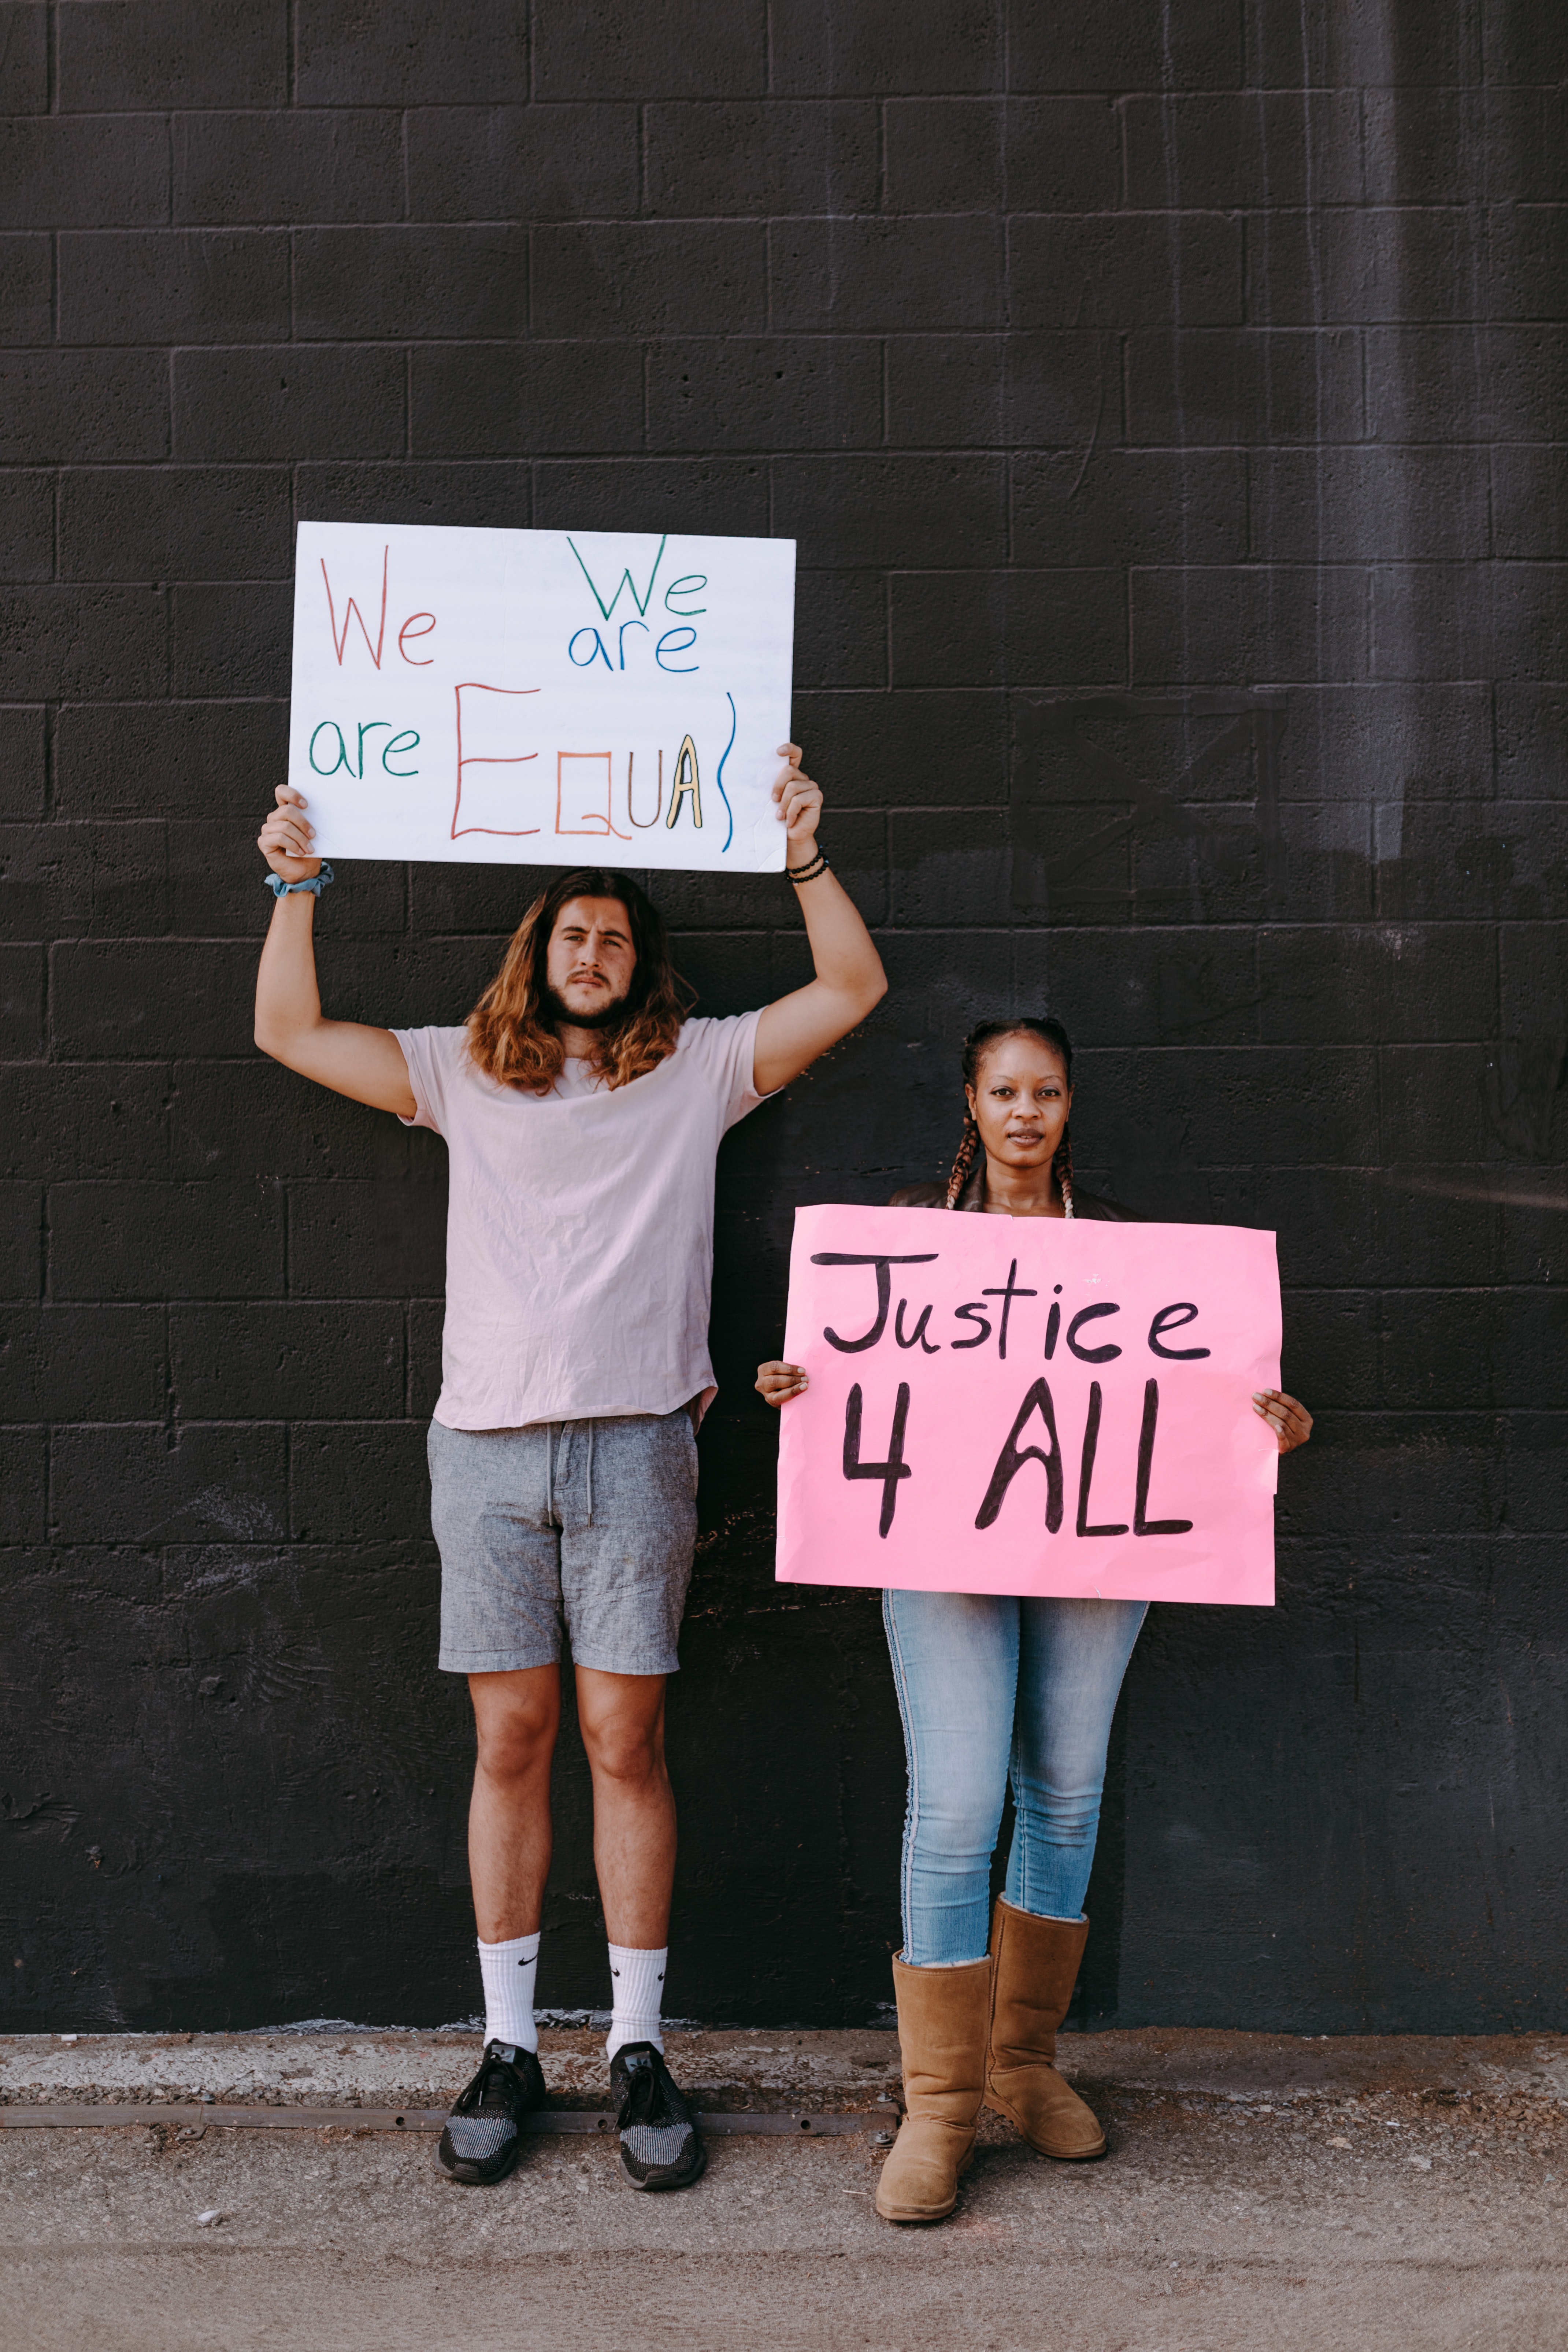 We We
are
are EQUAL
Justice
4 ALL